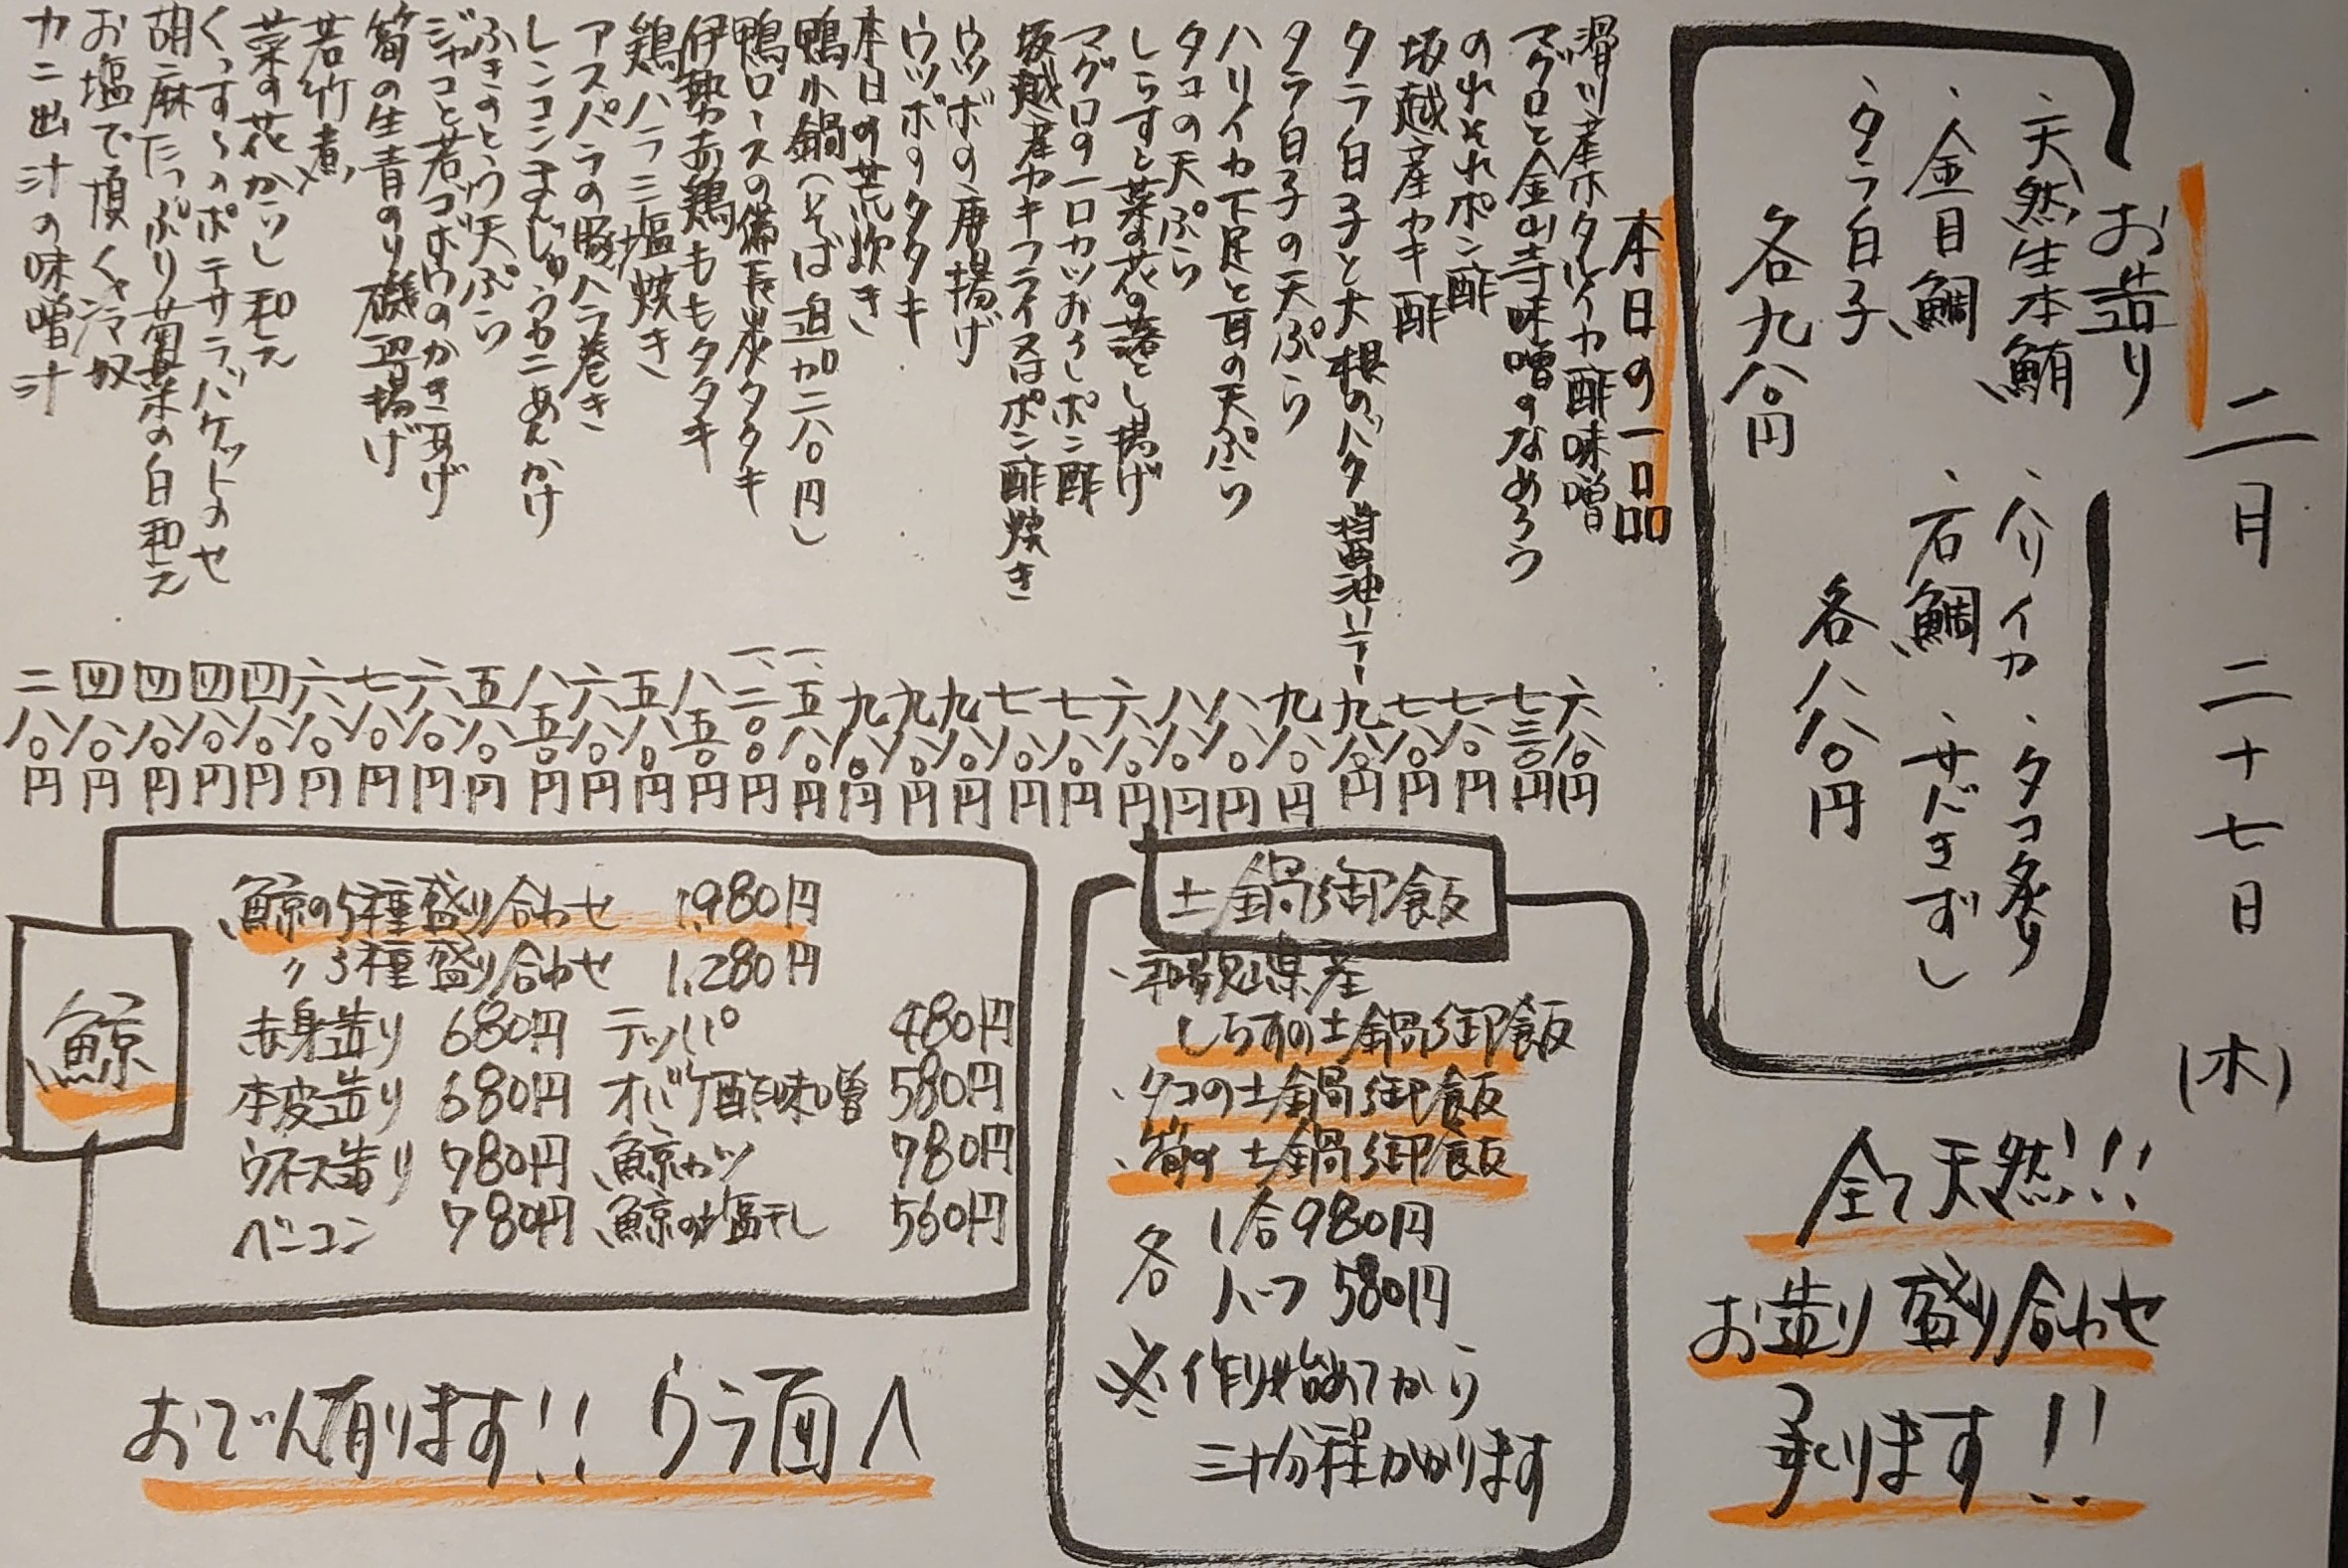 二月二十七日(木)
お造り
・天然生本鮪 ・ハリイカ ・タコ炙り
・金目鯛 ・石鯛 ・サバきずし
・タラ白子
各九八〇円 各八八〇円
全て天然!!
お造り盛り合わせ
承ります!!
本日の一品
滑川産ホタルイカ酢味噌 六八〇円
マグロと金山寺味噌のなめろう 七三〇円
のれそれポン酢 七八〇円
坂越産カキ酢 七八〇円
タラ白子と大根のバタ醤油ソテー 九八〇円
タラ白子の天ぷら 九八〇円
ハリイカ下足と耳の天ぷら 八八〇円
タコの天ぷら 八八〇円
しらすと菜の花の落とし揚げ 六八〇円
マグロの一口カツおろしポン酢 七八〇円
坂越産カキフライ又はポン酢焼き 七八〇円
ウツボの唐揚げ 九八〇円
ウツボのタタキ 九八〇円
本日の荒炊き 九八〇円
鴨小鍋(そば追加二八〇円) 一、五八〇円
鴨ロースの備長炭タタキ 一、二〇〇円
伊勢赤鶏ももタタキ 八五〇円
鶏ハラミ塩焼き 五八〇円
アスパラの豚バラ巻き 六八〇円
レンコンまんじゅうカニあんかけ 八五〇円
ふきのとう天ぷら 五八〇円
ジャコと若ゴボウのかき揚げ 六八〇円
筍の生青のり磯辺揚げ 七八〇円
若竹煮 六八〇円
菜の花からし和え 四八〇円
ポテサラバケットのせ 四八〇円
胡麻たっぷり菊菜の白和え 四八〇円
お塩で頂く冷奴 四八〇円
カニ出汁の味噌汁 二八〇円
土鍋御飯
・和歌山県産
しらすの土鍋御飯
・タコの土鍋御飯
・筍の土鍋御飯
各 1合980円
ハーフ580円
※作り始めてから
三十分程かかります
鯨
鯨の5種盛り合わせ 1,980円
〃3種盛り合わせ 1,280円
赤身造り 680円 テッパ 480円
本皮造り 680円 オバケ酢味噌 580円
ウネス造り 780円 鯨カツ 780円
ベーコン 780円 鯨の塩干し 560円
おでん有ります!! ウラ面へ